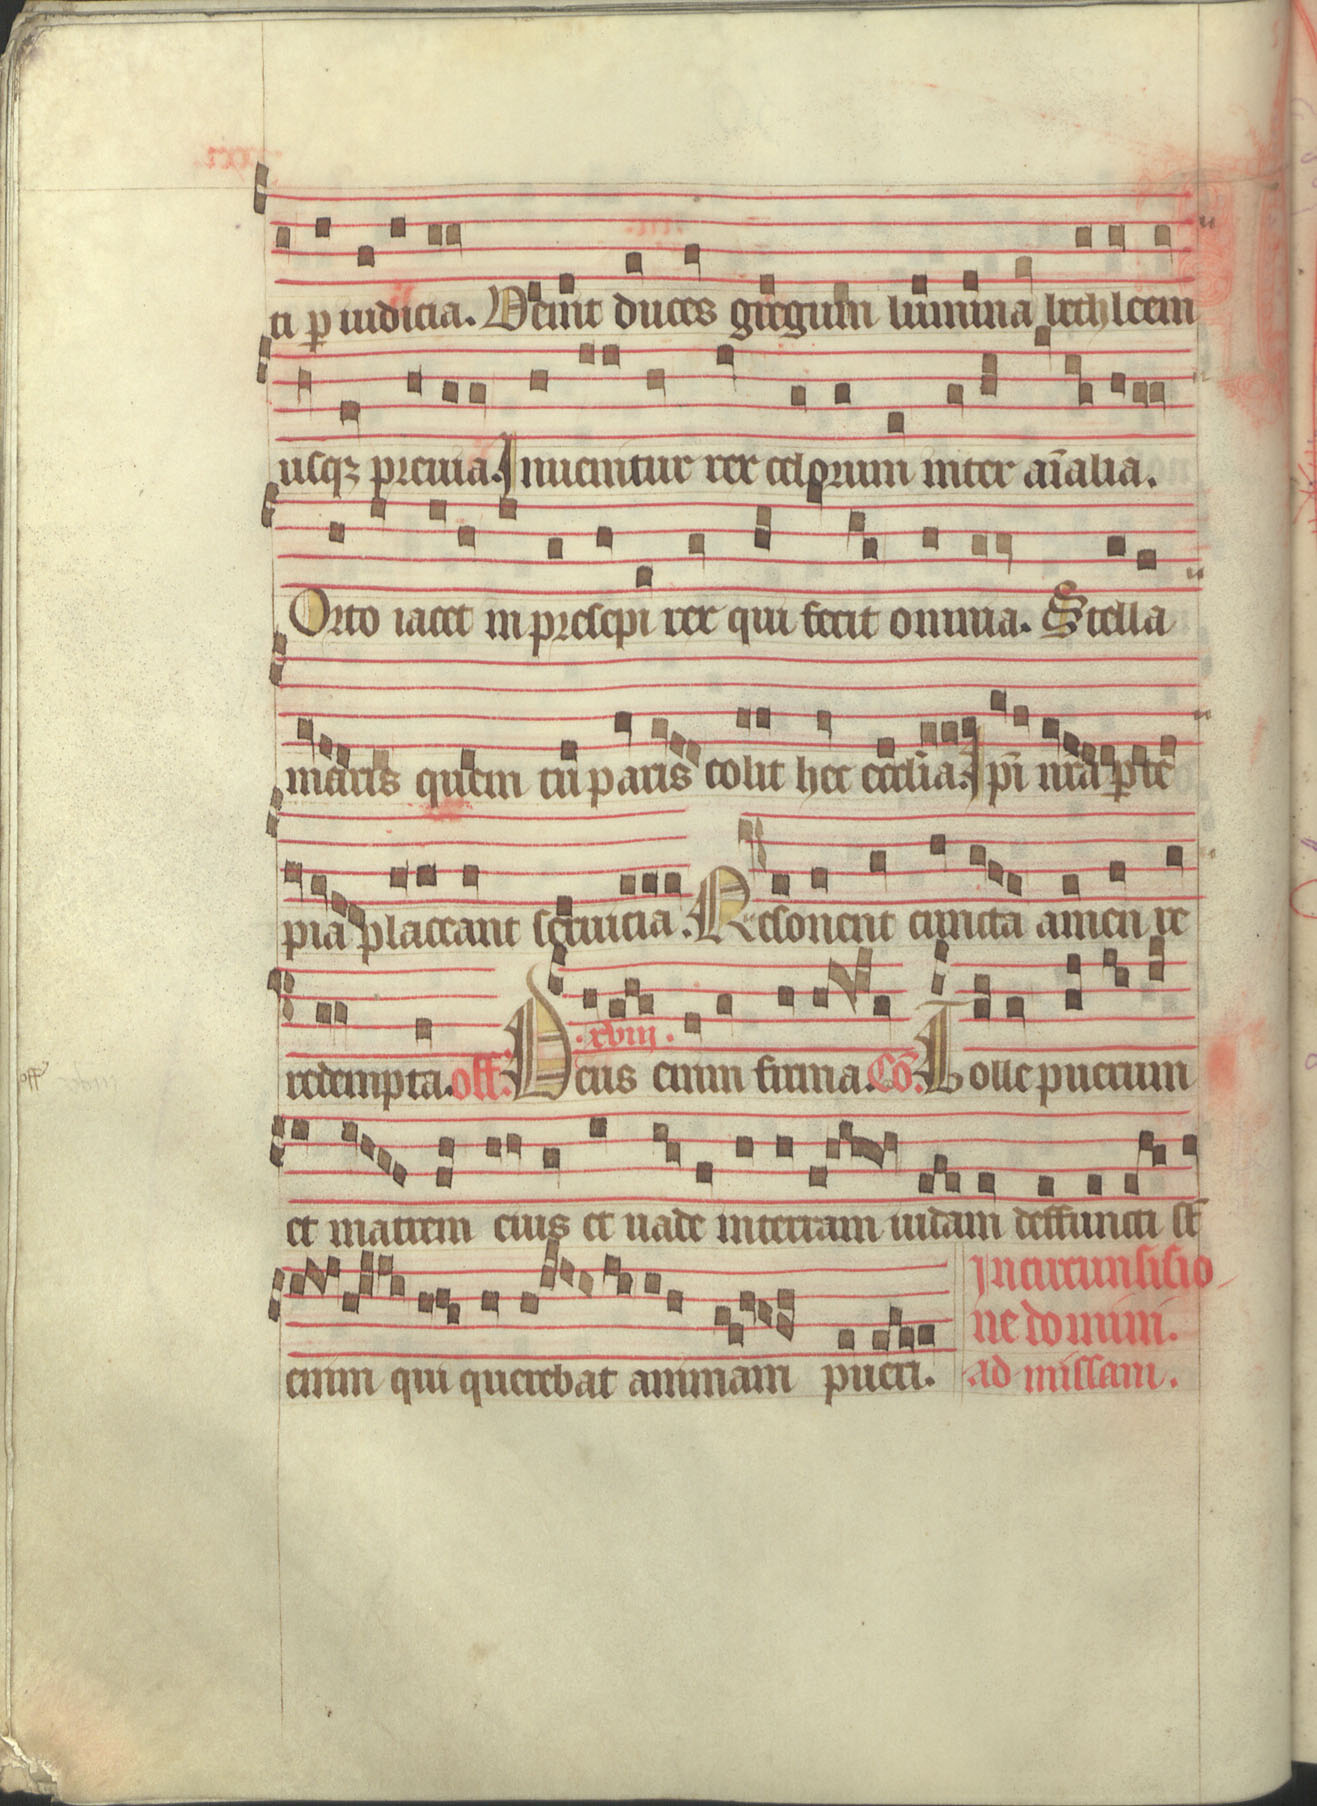 ti p iudicia. Veint duces gregum lumina lethleem
usqz previa. Inuenitur rex celorum inter aīalia.
Orto iacet in presepi rex qui fecit omnia. Stella
maris quem tu paris colit hec ecclīa. Ipī nrā p te
pia placeant seruicia. Resonent cuncta amen re
redempta. off. Deus enim firma. Cō. Tolle puerum
.xviii.
et matrem eius et uade in terram iudam deffuncti st̄
enim qui querebat animam pueri.
In circunsisio
ne domini.
ad missam.